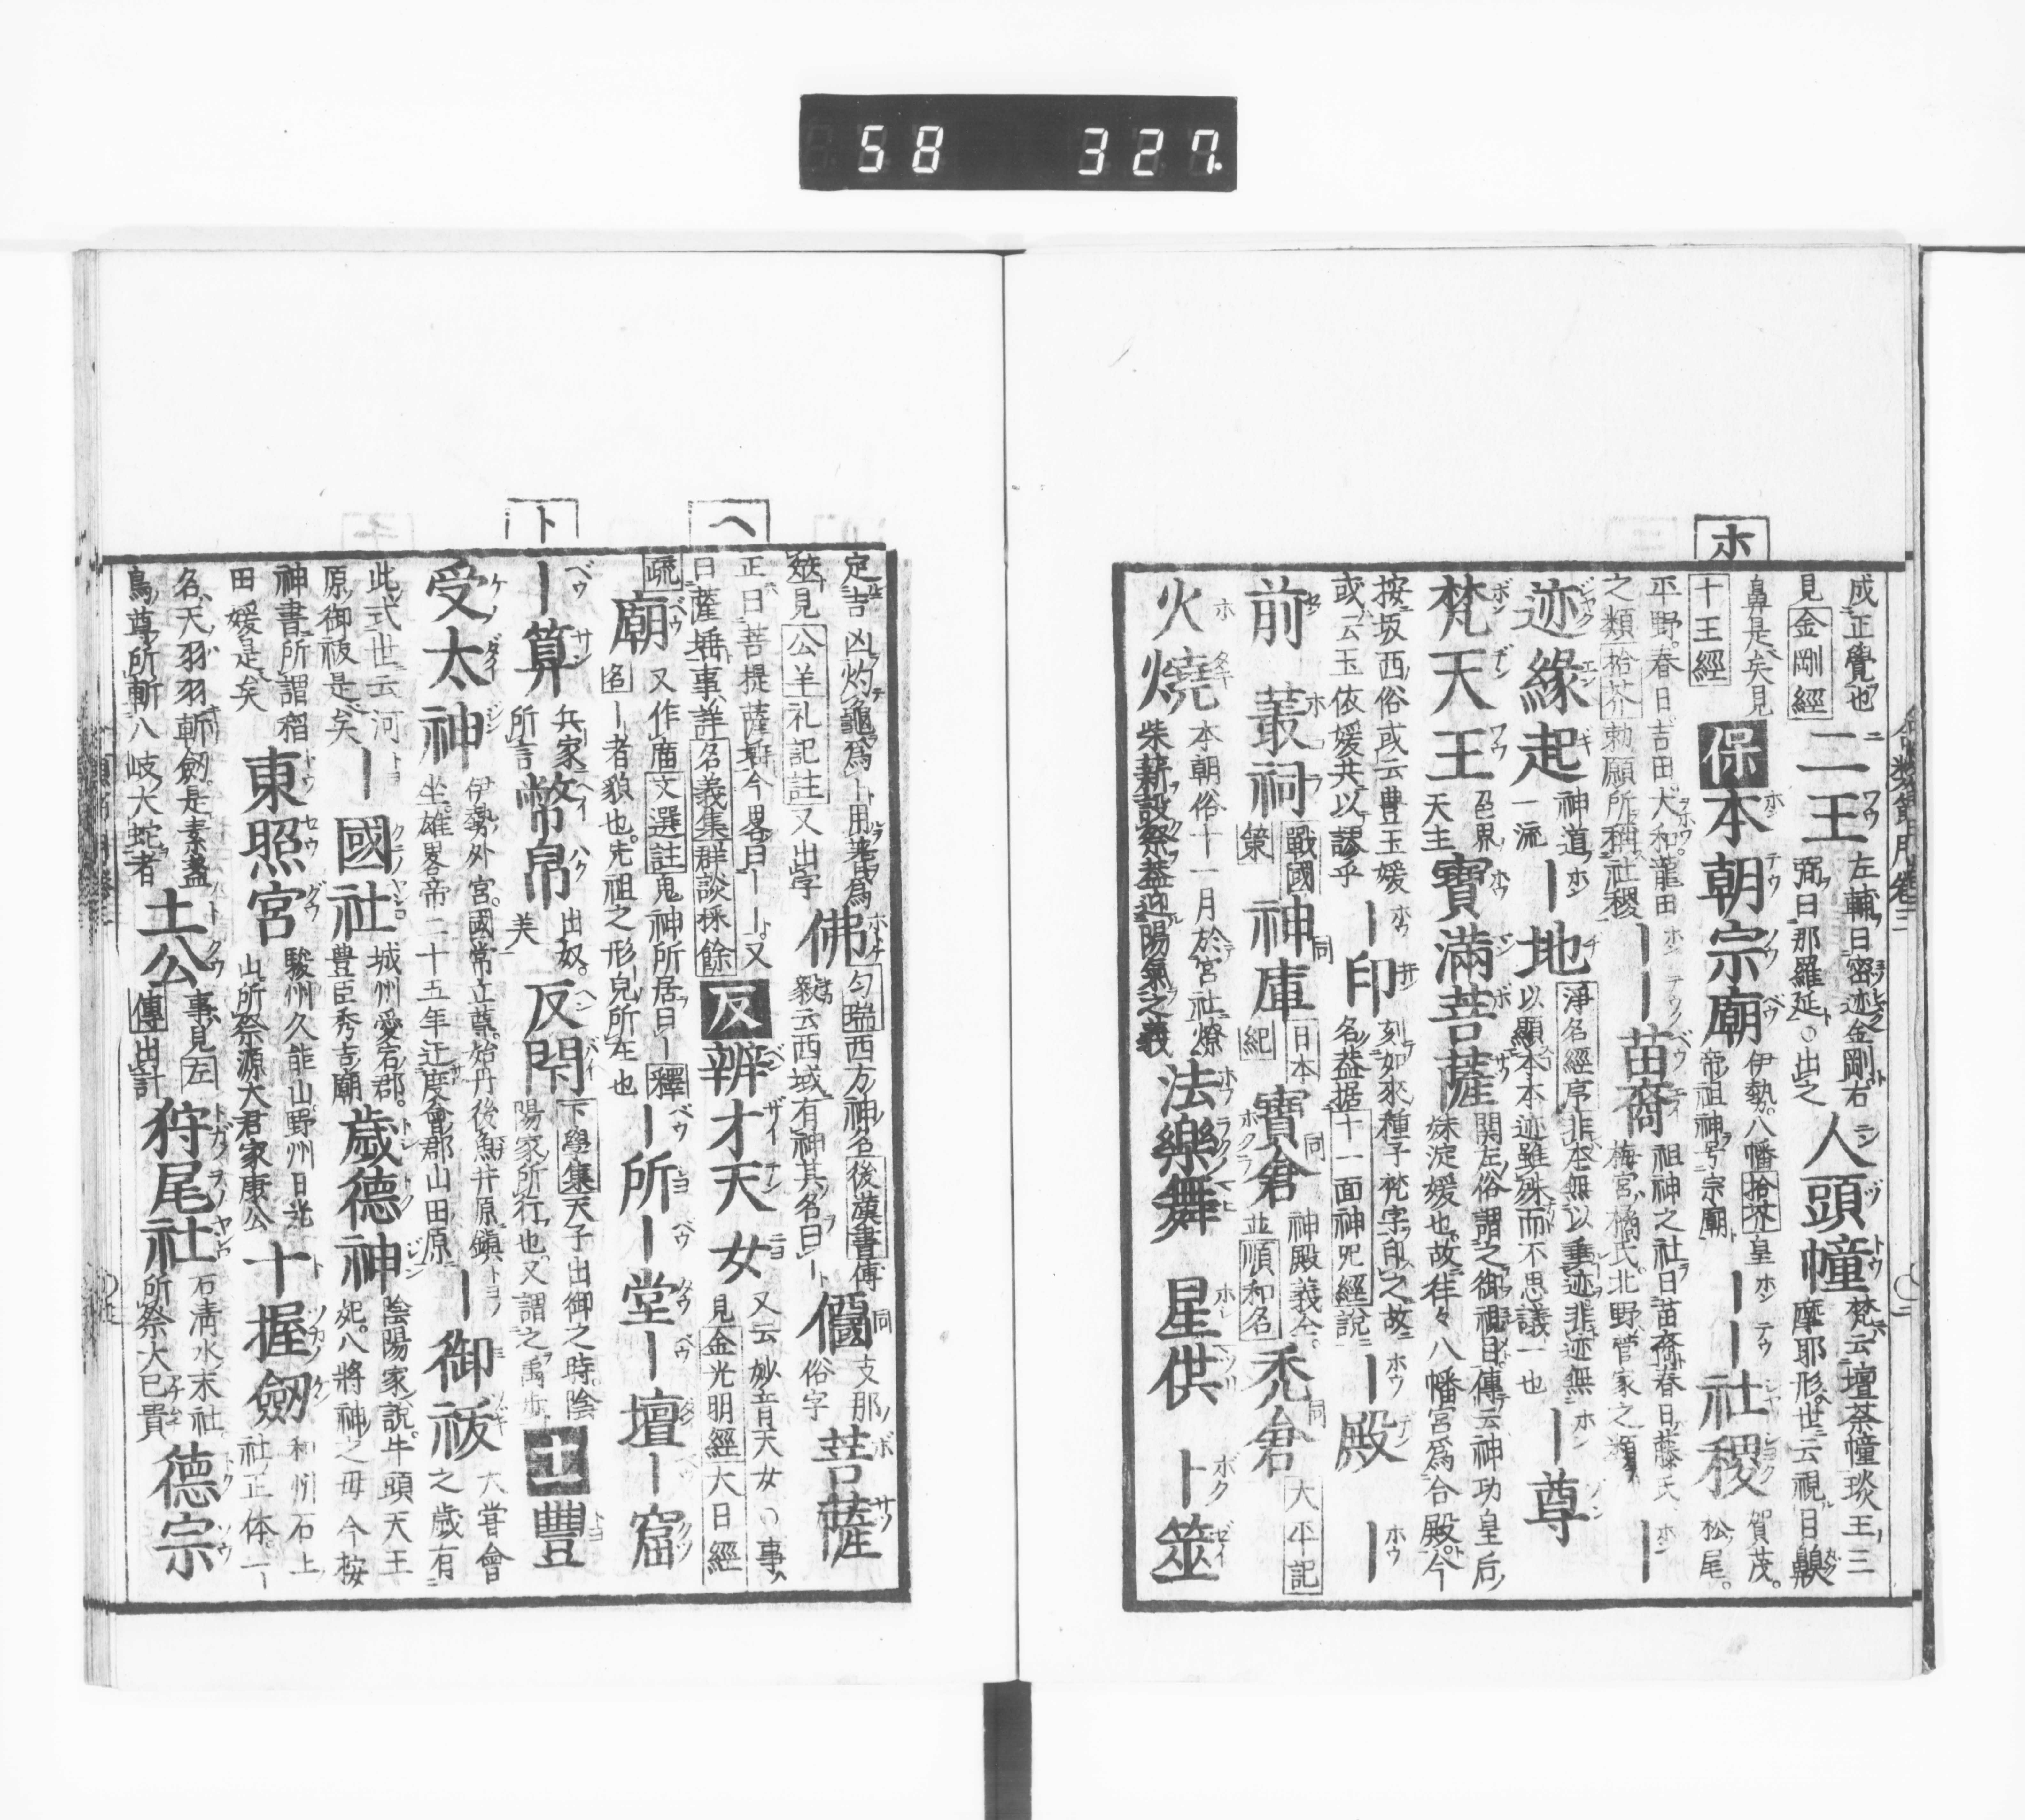 58 327
ホ
成正覺也
見金剛經
二王
左輔曰密迹金剛右
弼曰那羅延○出之
人頭幢
梵云壇荼幢琰王三
摩耶形世云視目㗅
鼻是矣見
十王經
保
本朝宗廟
伊勢八幡拾芥皇
帝祖神号宗廟
ーー社稷
賀茂。
松尾。
平野。春日。吉田。大和。龍田
之類拾芥勅願所稱社稷
ーー苗裔
祖神之社曰苗裔春日藤氏
梅宮橘氏北野菅家之類
ー
迹緣起
神道
一流
ー地
淨名經序非本無以垂迹非迹無
以顯本本迹雖殊而不思議一也
ー尊
梵天王
色界
天主
寶滿菩薩
開左俗謂之御祖目傳云神功皇后
妹淀媛也故往々八幡宮為合殿今
按坂西俗或云豊玉媛
或云玉依媛共以謬乎
ー印
刻如來種子梵字印之故
名葢据十一面神咒經説
ー殿
ー
前
叢祠
戰國
策
神庫
日本
紀
寶倉
神殿義仝。
並順和名
禿倉
太平記
火燒
本朝俗十一月於宮社燎
柴薪設祭葢迎陽氣之義
法樂舞
星供
卜筮
ヘ
ト
定吉凶灼龜為ー用蓍為
筮見公羊礼記註又出字
佛
勻瑞西方神名後漢書傳
毅云西域有神其名曰ー
儞
支那
俗字
菩薩
正曰菩提薩埵今畧曰ーー又
曰薩埵事詳名義集群談採餘
反
辨才天女
又云妙音天女○事
見金光明經大日經
疏
廟
又作庿文選註鬼神所居曰ー釋
名ー者貌也先祖之形皃所在也
ー所
ー堂
ー壇
ー窟
ー算
兵家
所言
幣帛
出奴。
美
反閇
下學集天子出御之時陰
陽家所行也又謂之禹步
土
豐
受太神
伊勢外宮。國常立尊。始丹後魚井原鎮
坐。雄畧帝二十五年迁度會郡山田原
ー御祓
大甞會
之歲有
此式世云河
原御祓是矣
ー國社
城州愛宕郡。
豊臣秀吉廟
歲德神
陰陽家説。牛頭天王
妃。八將神之母今按
神書所謂稻
田媛是矣
東照宮
駿州久能山。野州日光
山所祭源大君家康公
十握劔
和州石上
社正体。一
名天羽羽斬劔是素盞
烏尊所斬八岐大蛇者
土公
事見左
傳出計
狩尾社
石清水末社
所祭大已貴
德宗